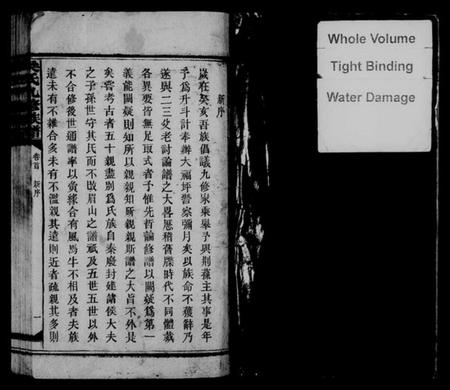 新序
歲在癸亥吾族倡議九修家乘舉予與荆葆主其事是年
予爲升斗計奉辦大福坪警察彌月矣以族命不獲辭乃
遂與二三父老討論譜之大畧歷稽舊牒時代不同體裁
各異要皆無足取式者予惟先哲論修譜以闕疑爲第一
義能闕疑則知所以親親知所親親斯譜之大旨不外是
矣嘗考古者五十親盡別爲氏族自秦廢封建諸侯大夫
之子孫世守其氏而不散眉山之譜祇及五世五世以外
不合修後世通譜率以黃緣合有風馬牛不相及者夫族
遠未有不雜合多未有不濫親其遠則近者疏親其多則
卷首
新序
一
Whole Volume
Tight Binding
Water Damage